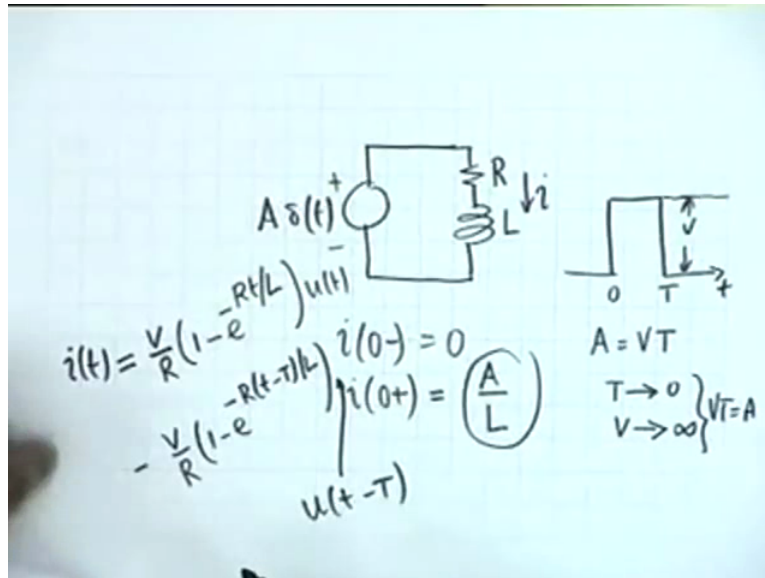 R
A δ(t)
+
−
L
i
V
0 T t
i(t) = V/R (1-e^{-Rt/L}) u(t)
- V/R (1-e^{-R(t-T)/L}) u(t-T)
i(0-) = 0
i(0+) = A/L
A = VT
T → 0
V → ∞
VT = A